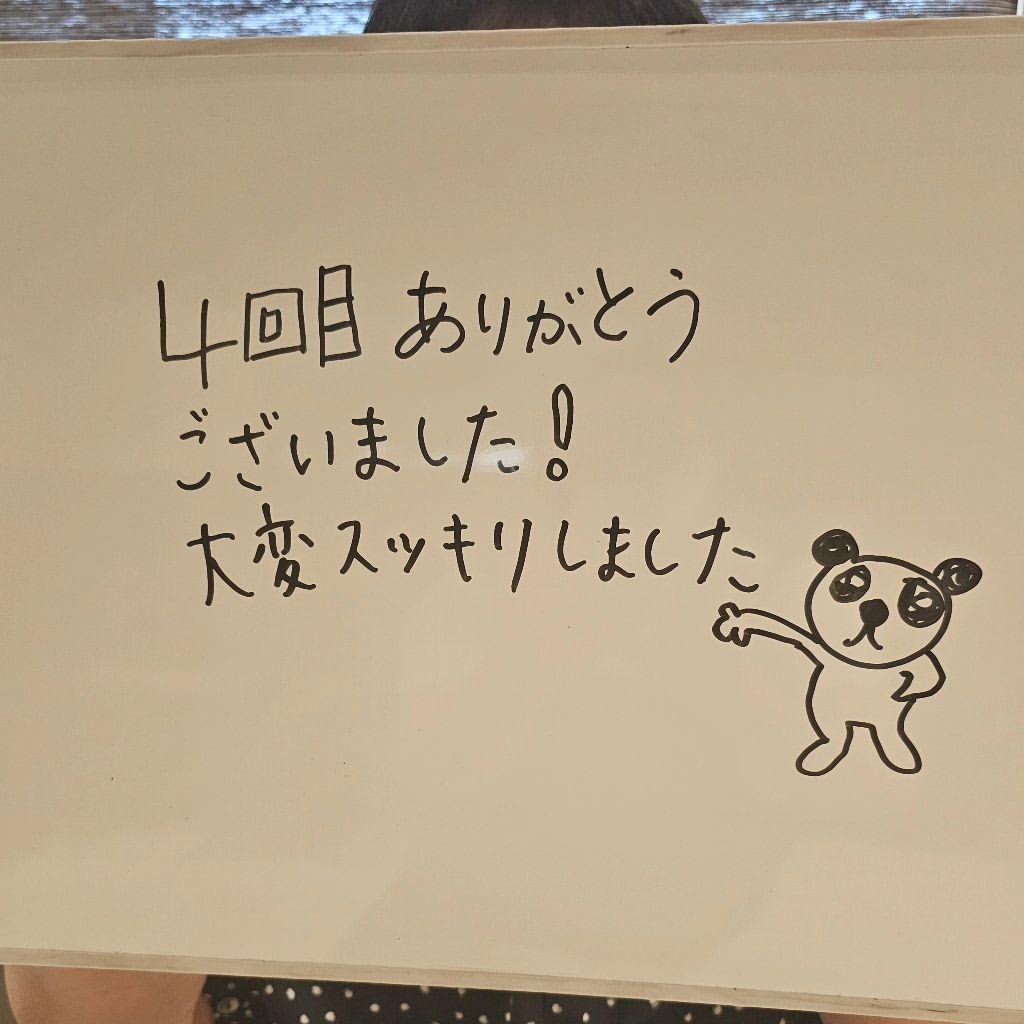 4回目 ありがとう
ございました!
大変スッキリしました